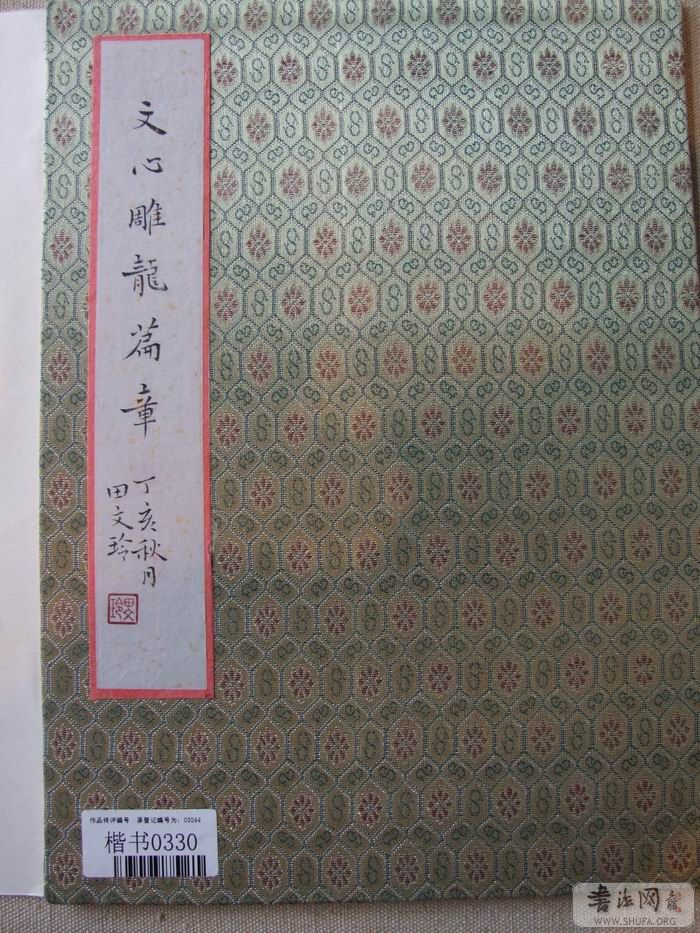 文心雕龍篇章
丁亥秋月
田文玲
田文玲
作品终评编号 原登记编号为：03244
楷书0330
书法网
WWW.SHUFA.ORG